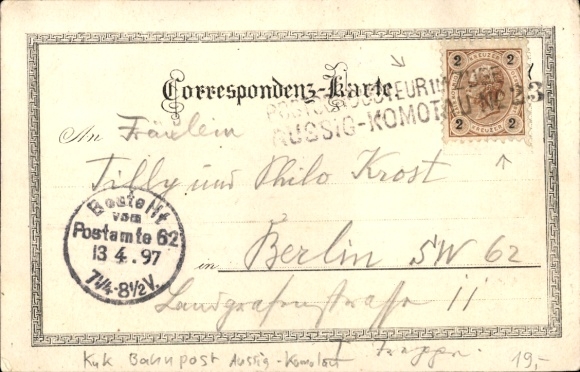 2 2
KREUZER
2 2
Correspondenz-Karte.
POSTCONDUCTEUR IM ZUGE
AUSSIG-KOMOTAU No 23
An Fräulein
Tilly und Philo Krost
in Berlin SW 62
Landgrafenstrasse 11
I Treppen.
Bestellt
vom
Postamte 62
13.4.97
7¼-8½V.
KuK Bahnpost Aussig-Komotau
19,-